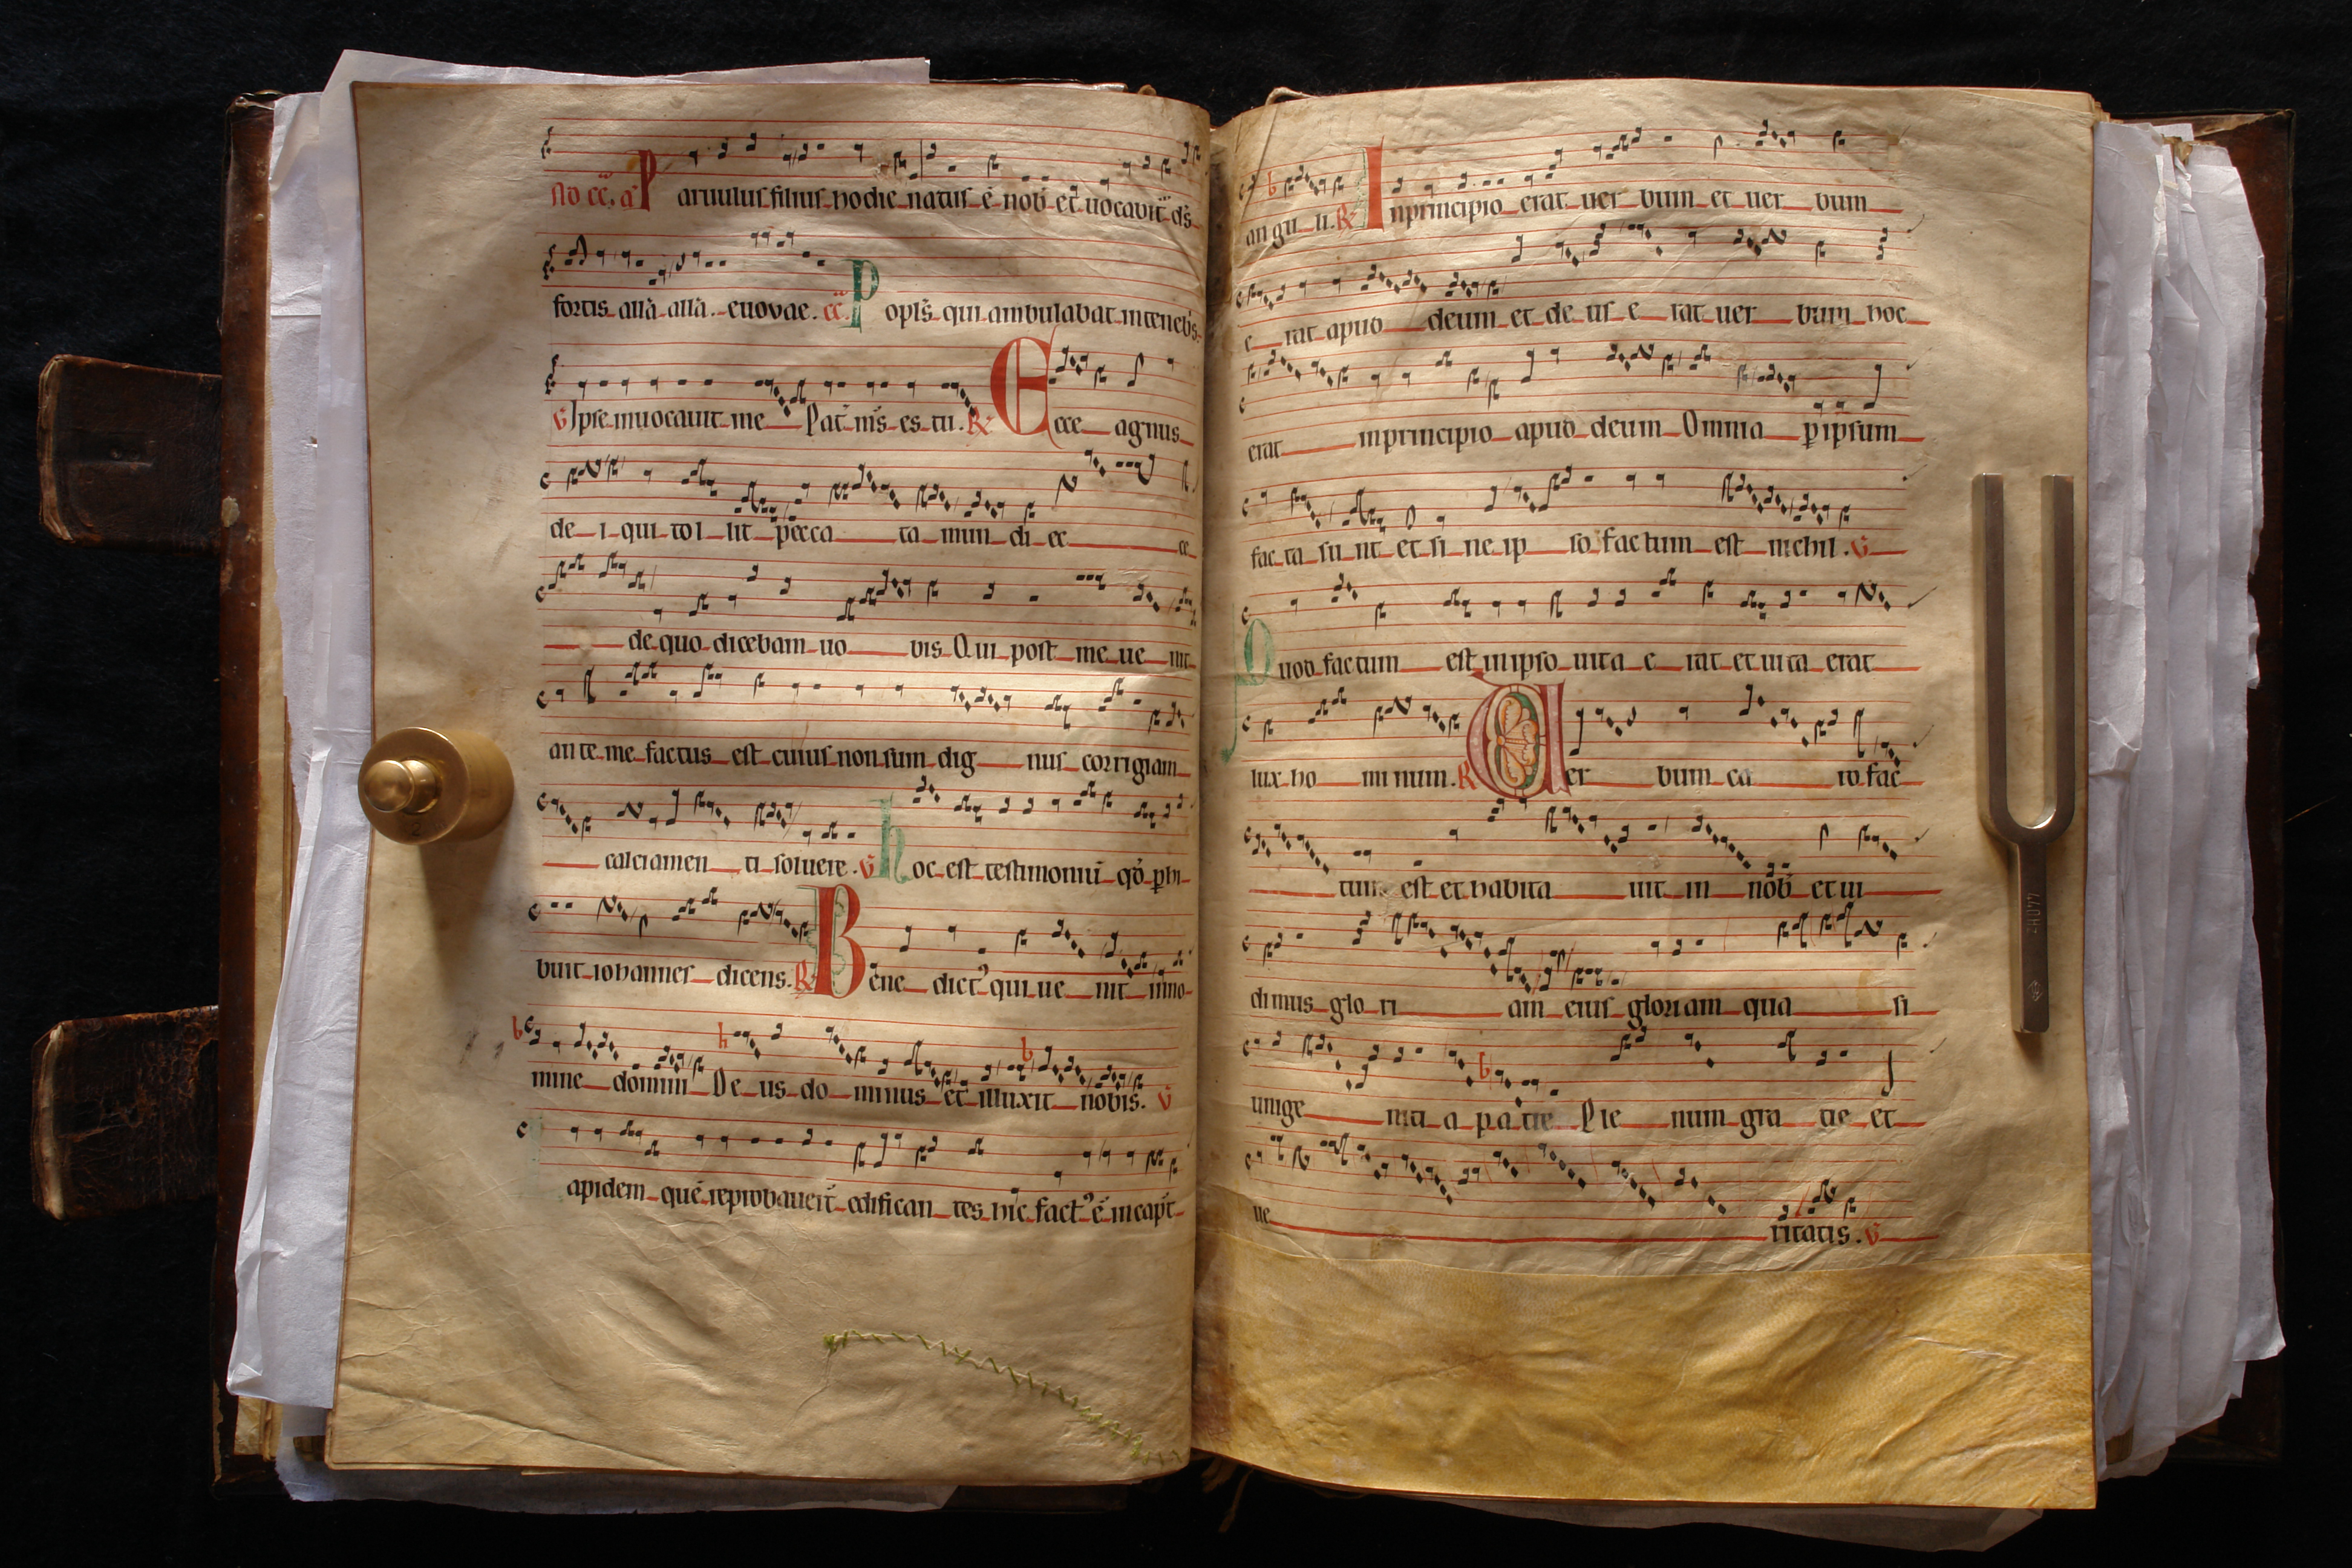 No cc. a Paruulus filius hodie natus ē nob̄ et uocabit̄ ds̄
fortis all̄a all̄a. euovae. cc. Popls̄ qui ambulabat in teneb̄s
V Ipse inuocauit me Pat̄ ms̄ es tu. R Ecce agnus
de i qui tol lit pecca ta mun di ec ce
de quo dicebam uo bis Qui post me ue nit
ante me factus est cuius non sum dig nus corrigiam
calciamen ti soluere. V hoc est testimoniū qd̄ p̄hi
buit iohannes dicens. R Bene dict9 qui ue nit inno
b h b
mine domini De us do minus et illuxit nobis. V
apidem quē reprobauer̄t edifican tes hic fact9 ē in cap̄t
b
an gu li. R Inprincipio erat uer bum et uer bum
e rat apud deum et de us e rat uer bum hoc
erat inprincipio apud deum Omnia p̄ ipsum
fac ta su nt et si ne ip so factum est nichil. V
Quod factum est in ipso uita e rat et uita erat
lux ho mi num. R Uer bum ca ro fac
tum est et habita uit in nob̄ et ui
dimus glo ri am eius gloriam qua si
b
unige niti a patre Ple num gra tie et
ue ritatis. V
2
440HZ